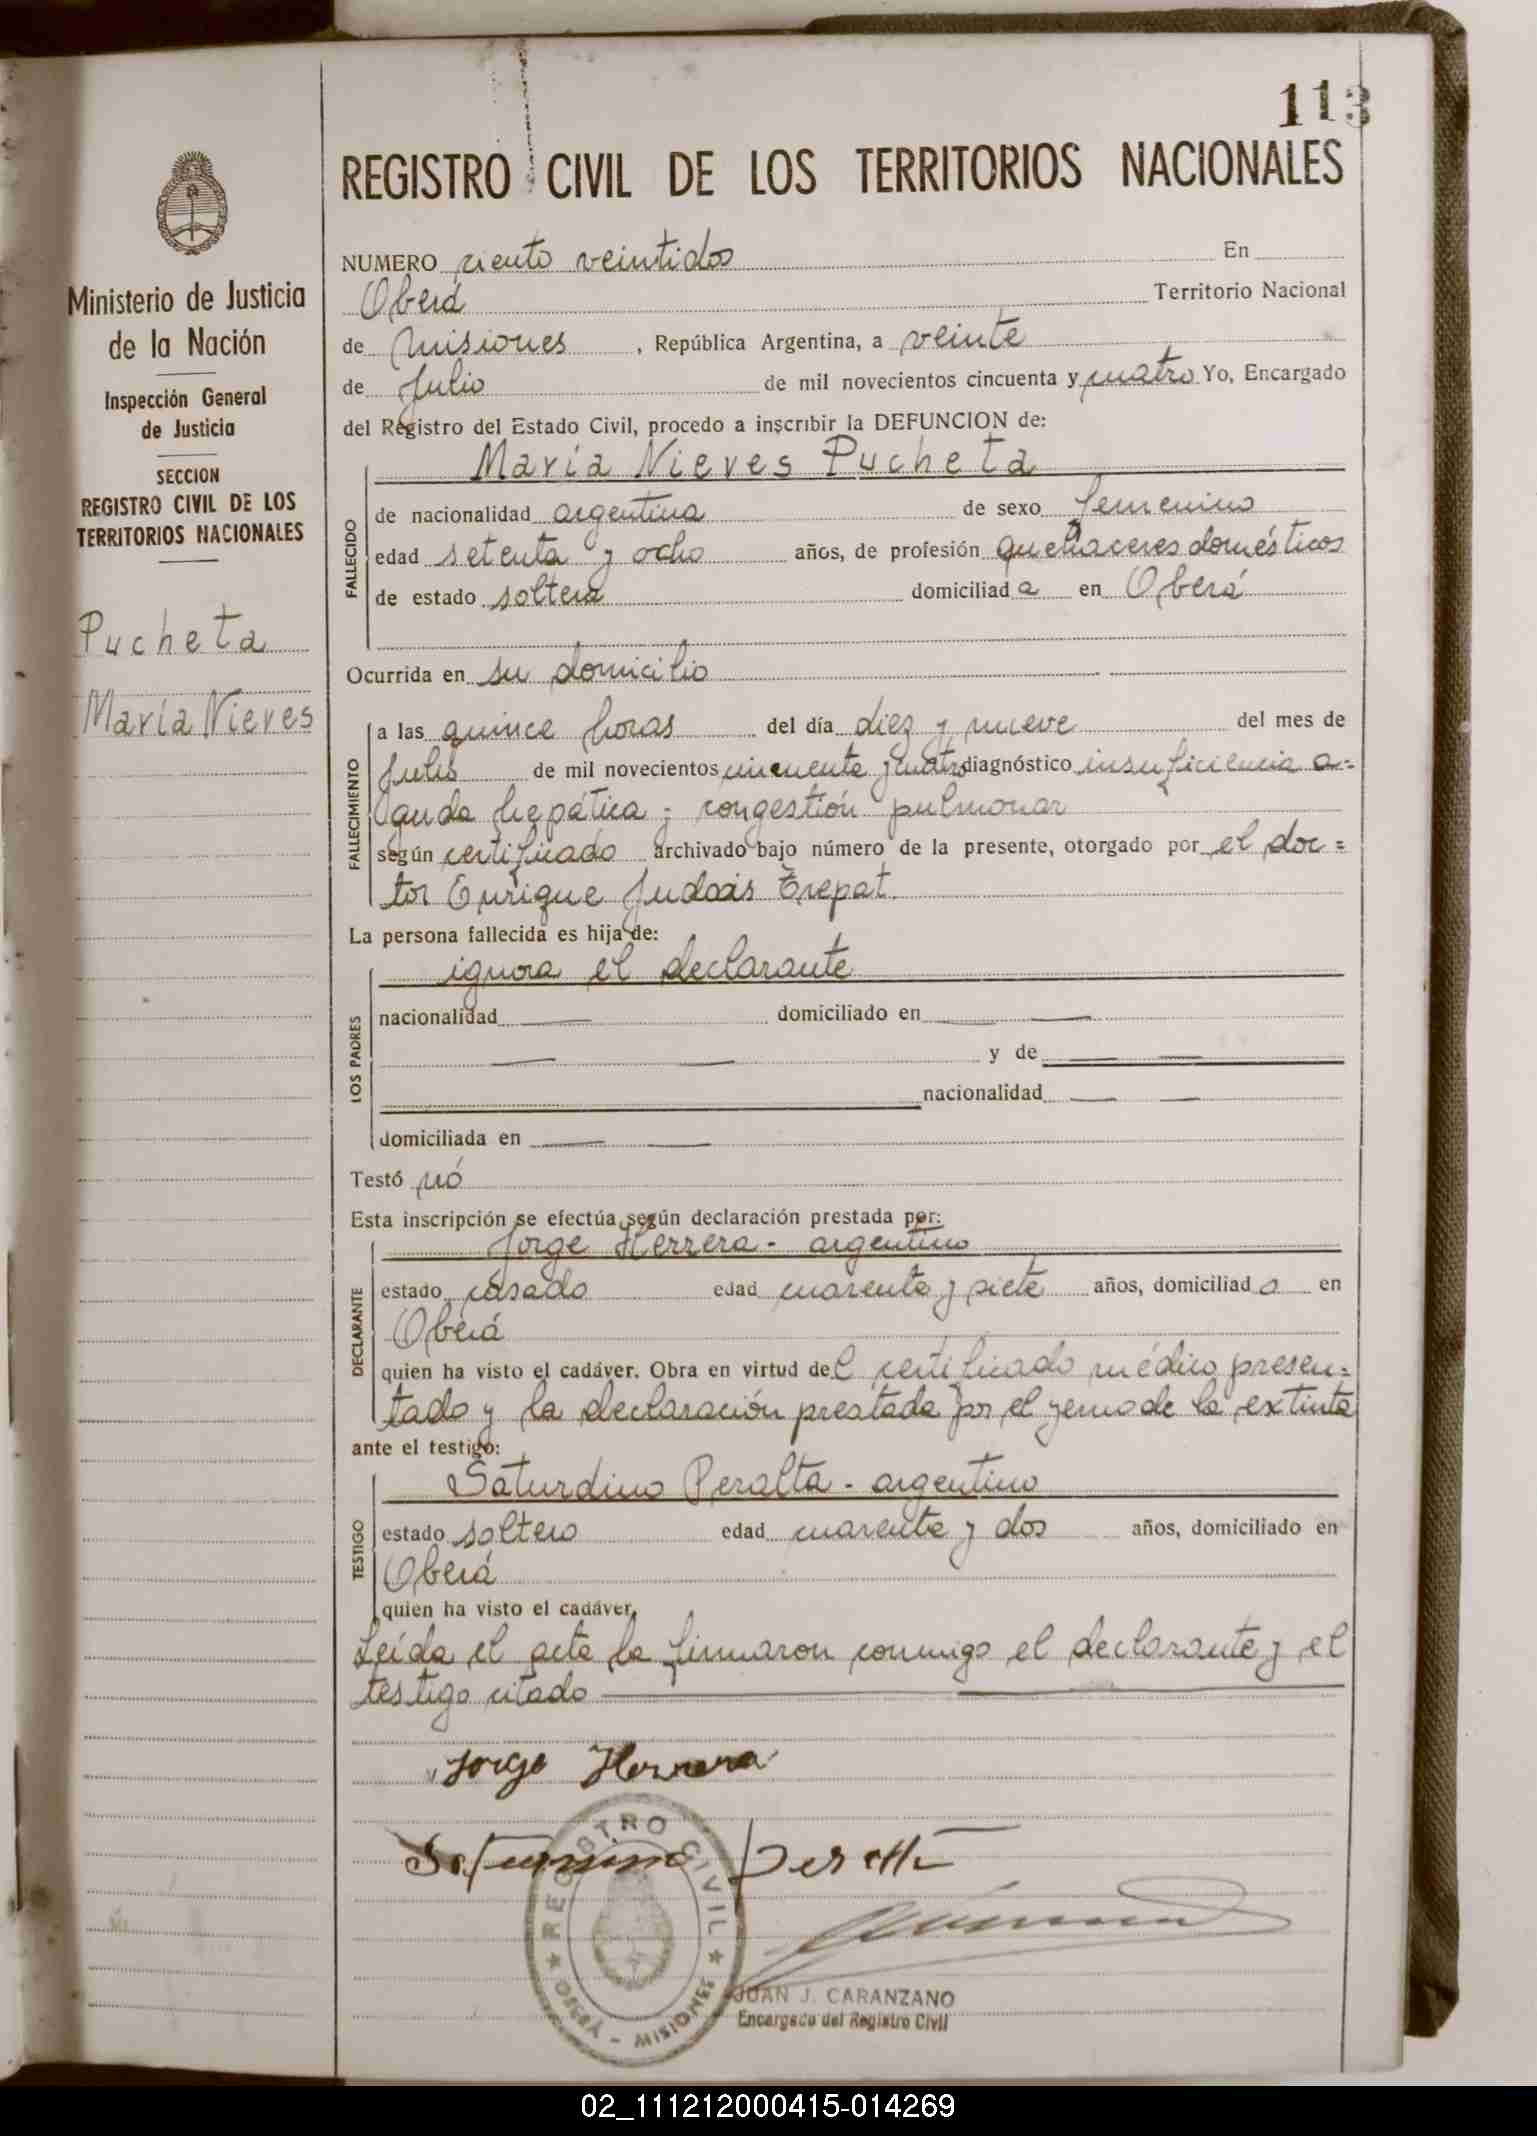 113
REGISTRO CIVIL DE LOS TERRITORIOS NACIONALES
Ministerio de Justicia
de la Nación
Inspección General
de Justicia
SECCION
REGISTRO CIVIL DE LOS
TERRITORIOS NACIONALES
Pucheta
María Nieves
NUMERO ciento veintidos En
Oberá Territorio Nacional
de Misiones, República Argentina, a veinte
de Julio de mil novecientos cincuenta y cuatro Yo, Encargado
del Registro del Estado Civil, procedo a inscribir la DEFUNCION de:
María Nieves Pucheta
FALLECIDO
de nacionalidad argentina de sexo femenino
edad setenta y ocho años, de profesión quehaceres domésticos
de estado soltera domiciliada en Oberá
Ocurrida en su domicilio
FALLECIMIENTO
a las quince horas del día diez y nueve del mes de
Julio de mil novecientos cincuenta y cuatro diagnóstico insuficiencia a=
guda hepática; congestión pulmonar
según certificado archivado bajo número de la presente, otorgado por el doc=
tor Enrique Trepat.
La persona fallecida es hija de:
LOS PADRES
ignora el declarante
nacionalidad domiciliado en
y de
nacionalidad
domiciliada en
Testó nó
Esta inscripción se efectúa según declaración prestada por:
DECLARANTE
Jorge Herrera - argentino
estado casado edad cuarenta y siete años, domiciliado en
Oberá
quien ha visto el cadáver. Obra en virtud del certificado médico presen=
tado y la declaración prestada por el yerno de la extinta
ante el testigo:
TESTIGO
Saturdino Peralta - argentino
estado soltero edad cuarenta y dos años, domiciliado en
Oberá
quien ha visto el cadáver.
Leída el acta la firmaron conmigo el declarante y el
testigo citado
Jorge Herrera
REGISTRO CIVIL
OBERA - MISIONES
JUAN J. CARANZANO
Encargado del Registro Civil
02_111212000415-014269